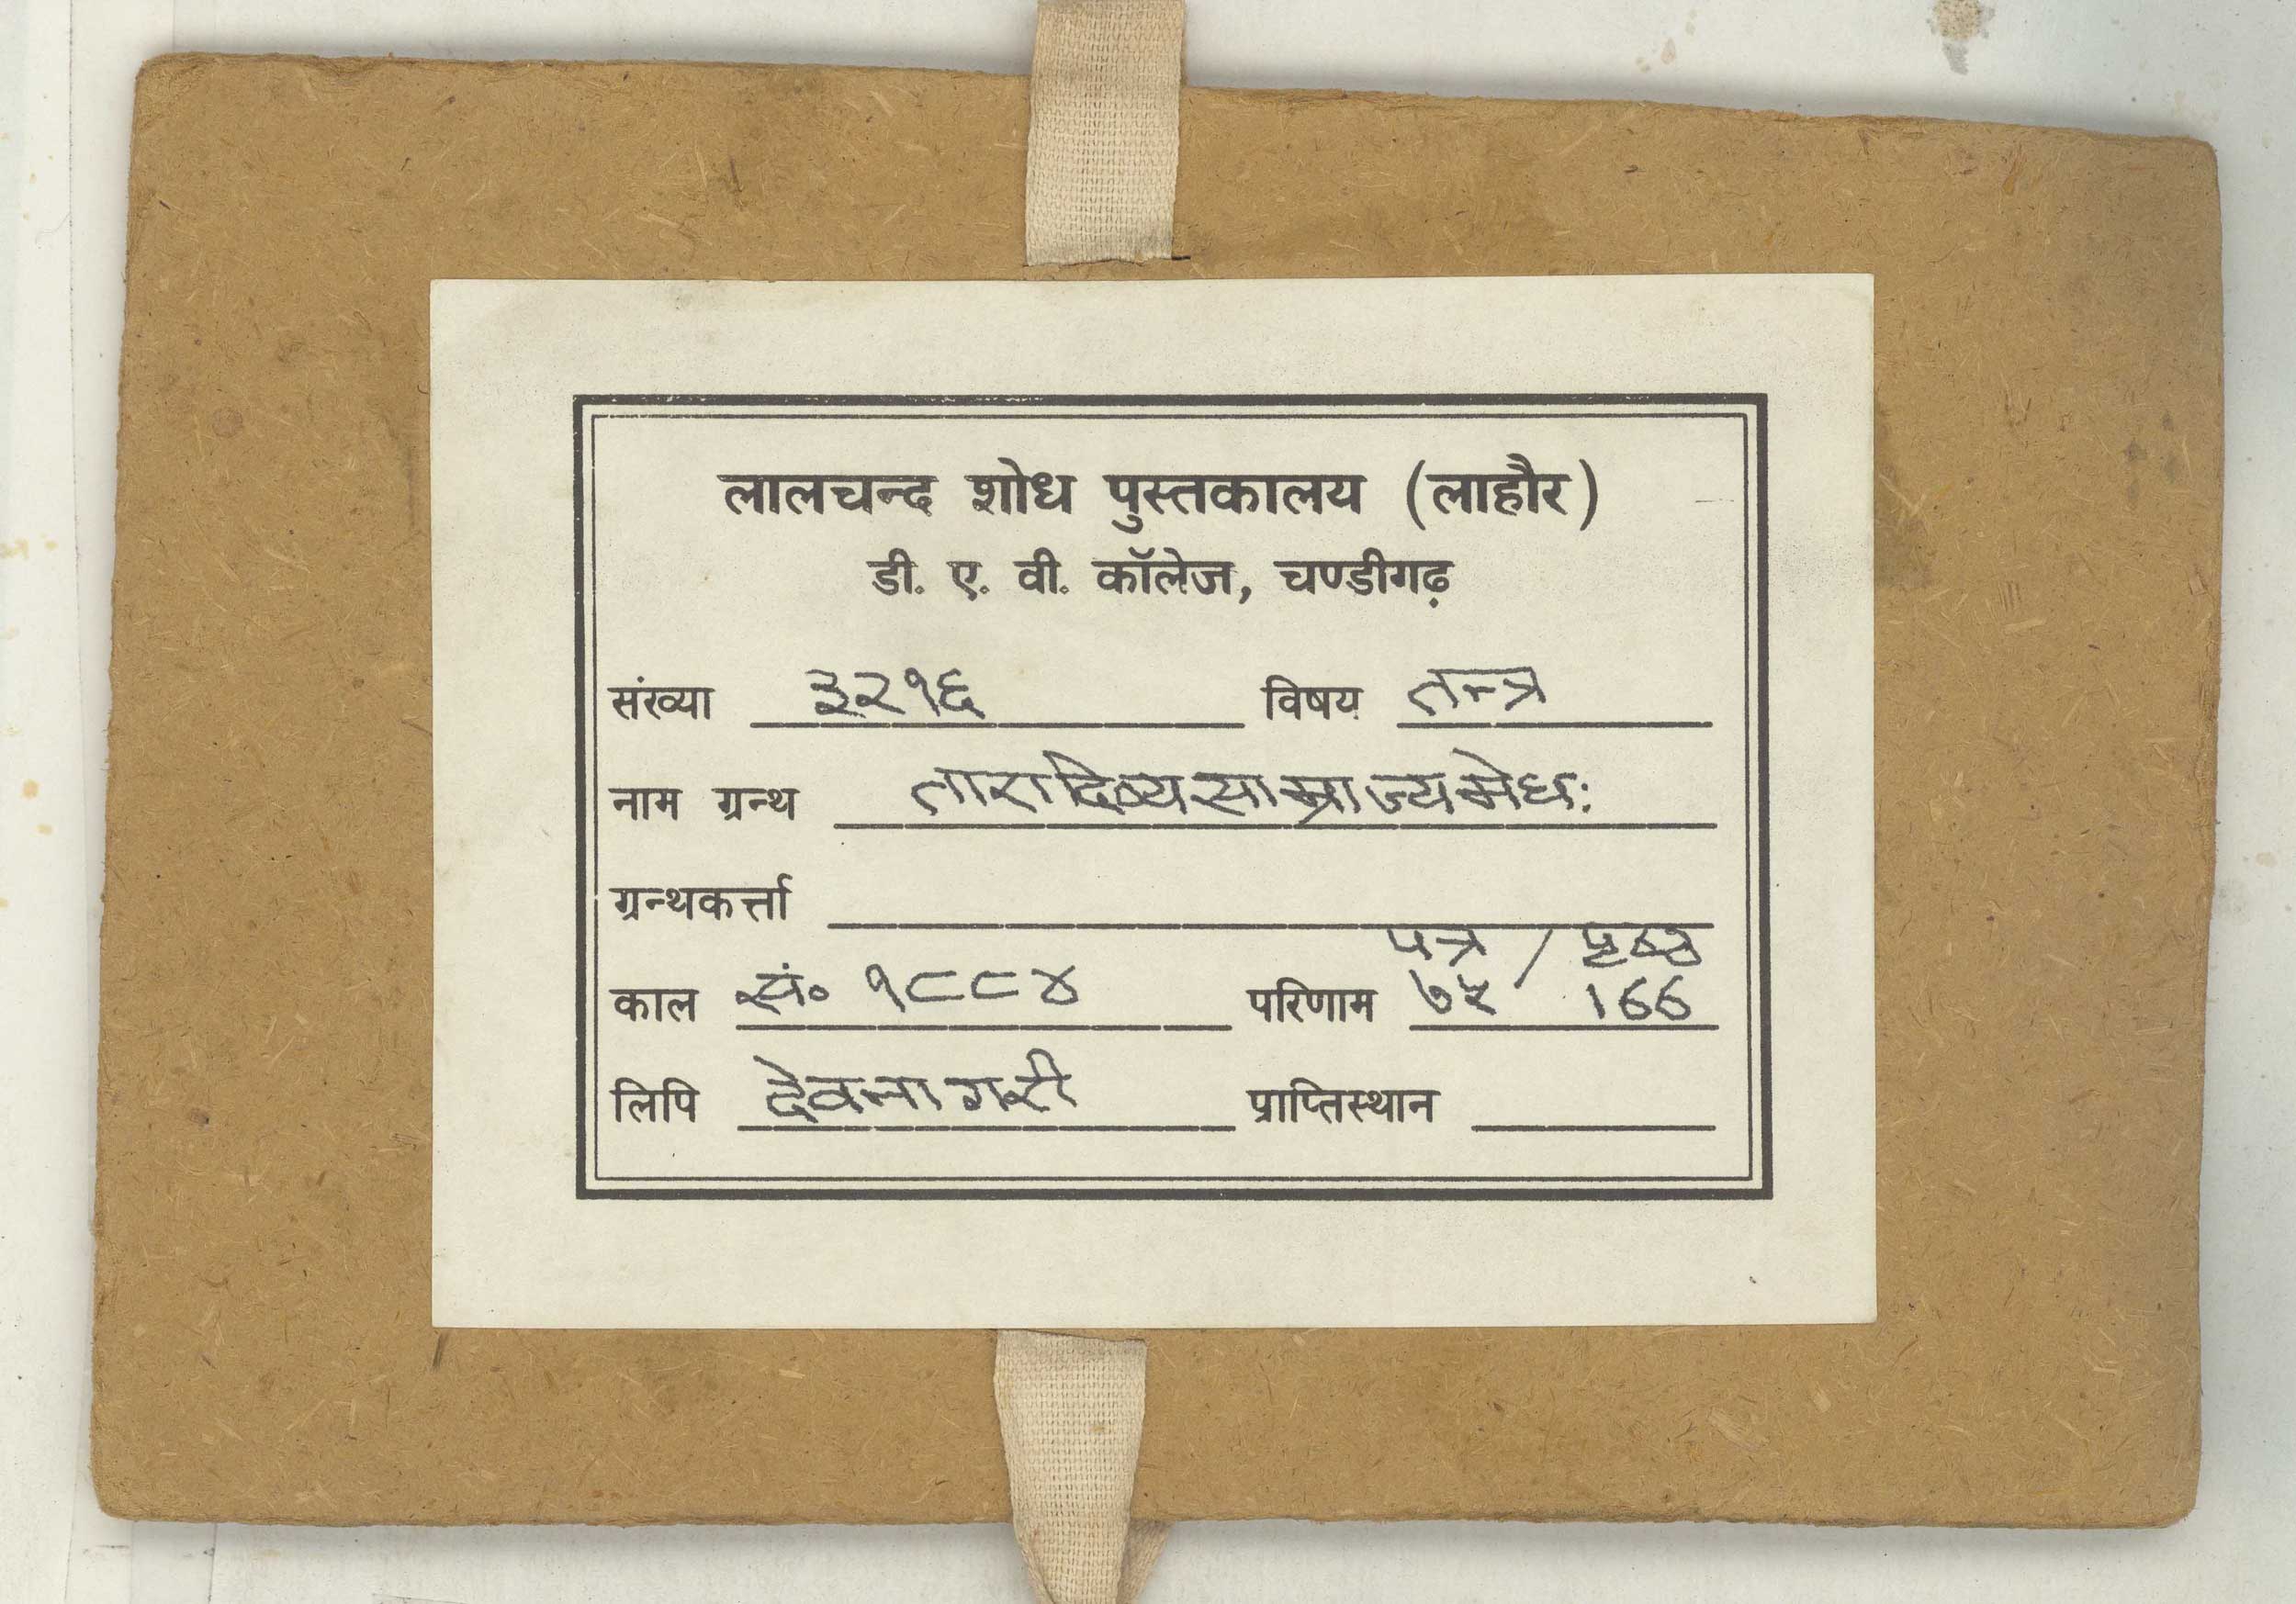 लालचन्द शोध पुस्तकालय (लाहौर)
डी. ए. वी. कॉलेज, चण्डीगढ़
संख्या ३२१६ विषय तन्त्र
नाम ग्रन्थ तारादिव्यसाम्राज्यमेधः
ग्रन्थकर्त्ता
पत्र / पृष्ठ
काल सं० १८८४ परिणाम ७५ 166
लिपि देवनागरी प्राप्तिस्थान